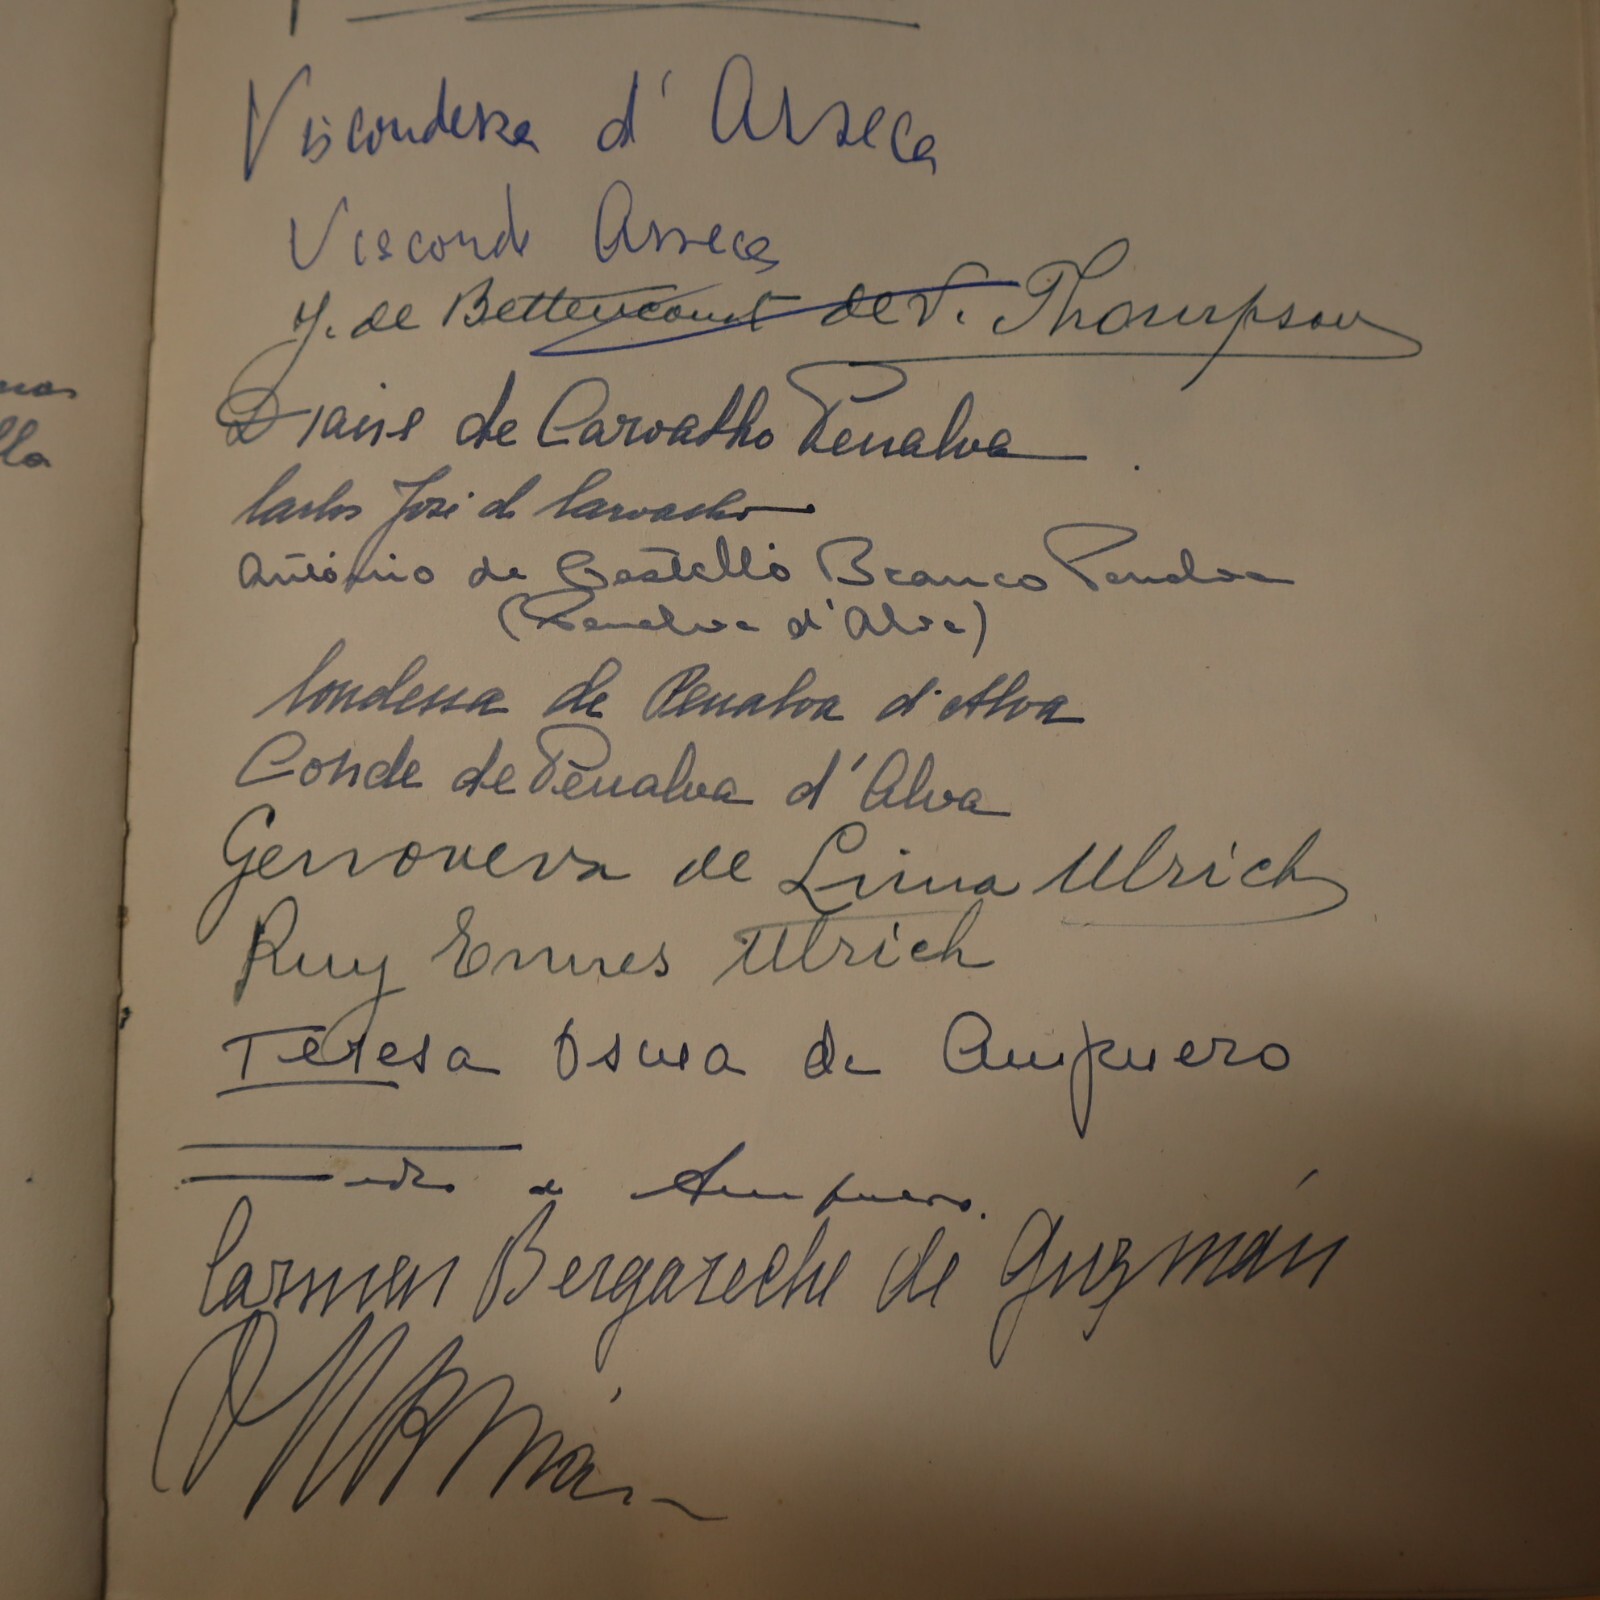 Viscondessa d'Asseca
Visconde Asseca
J. de Bettencourt de V. Thompson
Diane de Carvalho Penalva
Carlos José de Carvalho
António de Castello Branco Penalva
(Penalva d'Alva)
Condessa de Penalva d'Alva
Conde de Penalva d'Alva
Genoveva de Lima Ulrich
Ruy Ennes Ulrich
Teresa Osma de Ampuero
de Ampuero.
Carmen Bergareche de Guzmán